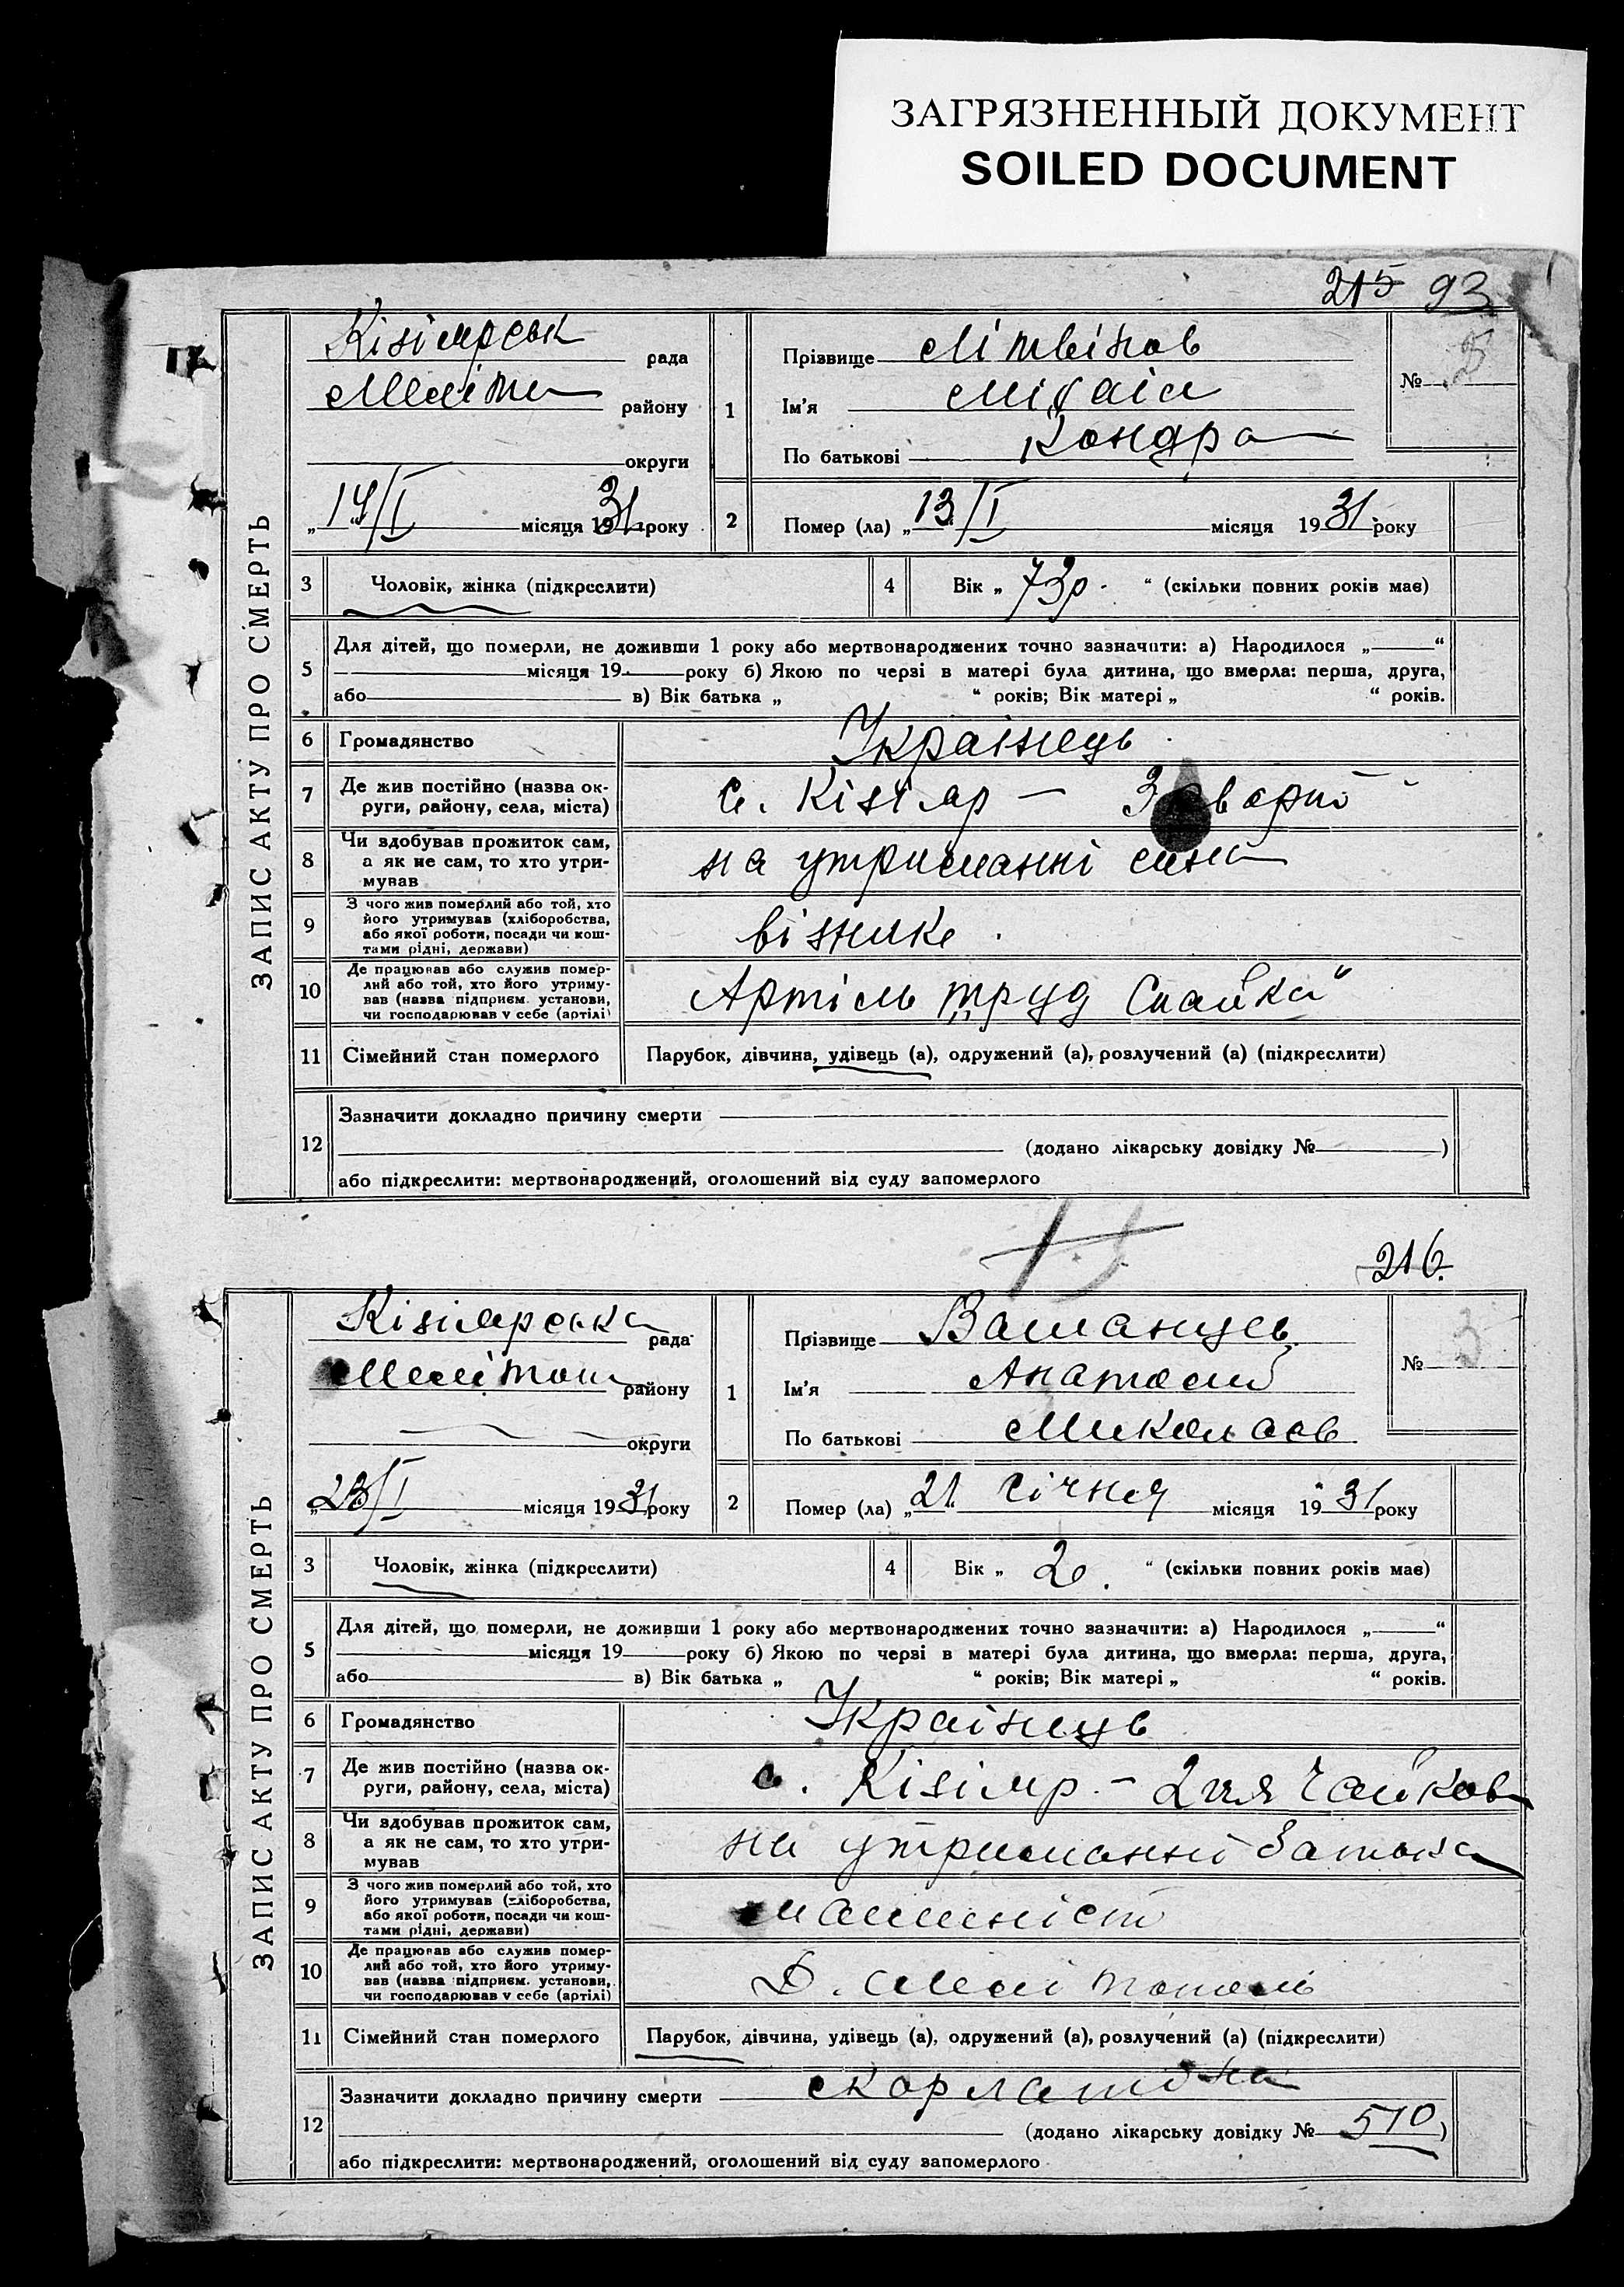 ЗАГРЯЗНЕННЫЙ ДОКУМЕНТ
SOILED DOCUMENT
215 93
ЗАПИС АКТУ ПРО СМЕРТЬ
Кізіярськ рада
Меліт району
округи
„14/I місяця 1931 року
1 Прізвище Літвінов
Ім'я Міхаіл
По батькові Кондра
№
2 Помер (ла) „13/I місяця 1931 року
3 Чоловік, жінка (підкреслити)
4 Вік „73р. “ (скільки повних років має)
5 Для дітей, що померли, не доживши 1 року або мертвонароджених точно зазначити: а) Народилося „ “
місяця 19 року б) Якою по черзі в матері була дитина, що вмерла: перша, друга,
або в) Вік батька „ “ років; Вік матері „ “ років.
6 Громадянство Українець
7 Де жив постійно (назва округи, району, села, міста) с. Кізіяр —
8 Чи здобував прожиток сам, а як не сам, то хто утримував на утриманні сина
9 З чого жив померлий або той, хто його утримував (хліборобства, або якої роботи, посади чи коштами рідні, держави)
10 Де працював або служив померлий або той, хто його утримував (назва підприєм. установи, чи господарював у себе (артілі) Артіль труд
11 Сімейний стан померлого Парубок, дівчина, удівець (а), одружений (а), розлучений (а) (підкреслити)
12 Зазначити докладно причину смерти
(додано лікарську довідку № )
або підкреслити: мертвонароджений, оголошений від суду запомерлого
216.
ЗАПИС АКТУ ПРО СМЕРТЬ
Кізіярська рада
Мелітоп району
округи
„23/I місяця 1931 року
1 Прізвище Ваманцев
Ім'я Анатолий
По батькові Миколаєв
№ 3
2 Помер (ла) „21“ січня місяця 1931 року
3 Чоловік, жінка (підкреслити)
4 Вік „ 2 “ (скільки повних років має)
5 Для дітей, що померли, не доживши 1 року або мертвонароджених точно зазначити: а) Народилося „ “
місяця 19 року б) Якою по черзі в матері була дитина, що вмерла: перша, друга,
або в) Вік батька „ “ років; Вік матері „ “ років.
6 Громадянство Українець
7 Де жив постійно (назва округи, району, села, міста) с. Кізіяр —
8 Чи здобував прожиток сам, а як не сам, то хто утримував на утриманні батька
9 З чого жив померлий або той, хто його утримував (хліборобства, або якої роботи, посади чи коштами рідні, держави) машиніст
10 Де працював або служив померлий або той, хто його утримував (назва підприєм. установи, чи господарював у себе (артілі) Д. Мелітополь
11 Сімейний стан померлого Парубок, дівчина, удівець (а), одружений (а), розлучений (а) (підкреслити)
12 Зазначити докладно причину смерти скорлатіна
(додано лікарську довідку № 510)
або підкреслити: мертвонароджений, оголошений від суду запомерлого